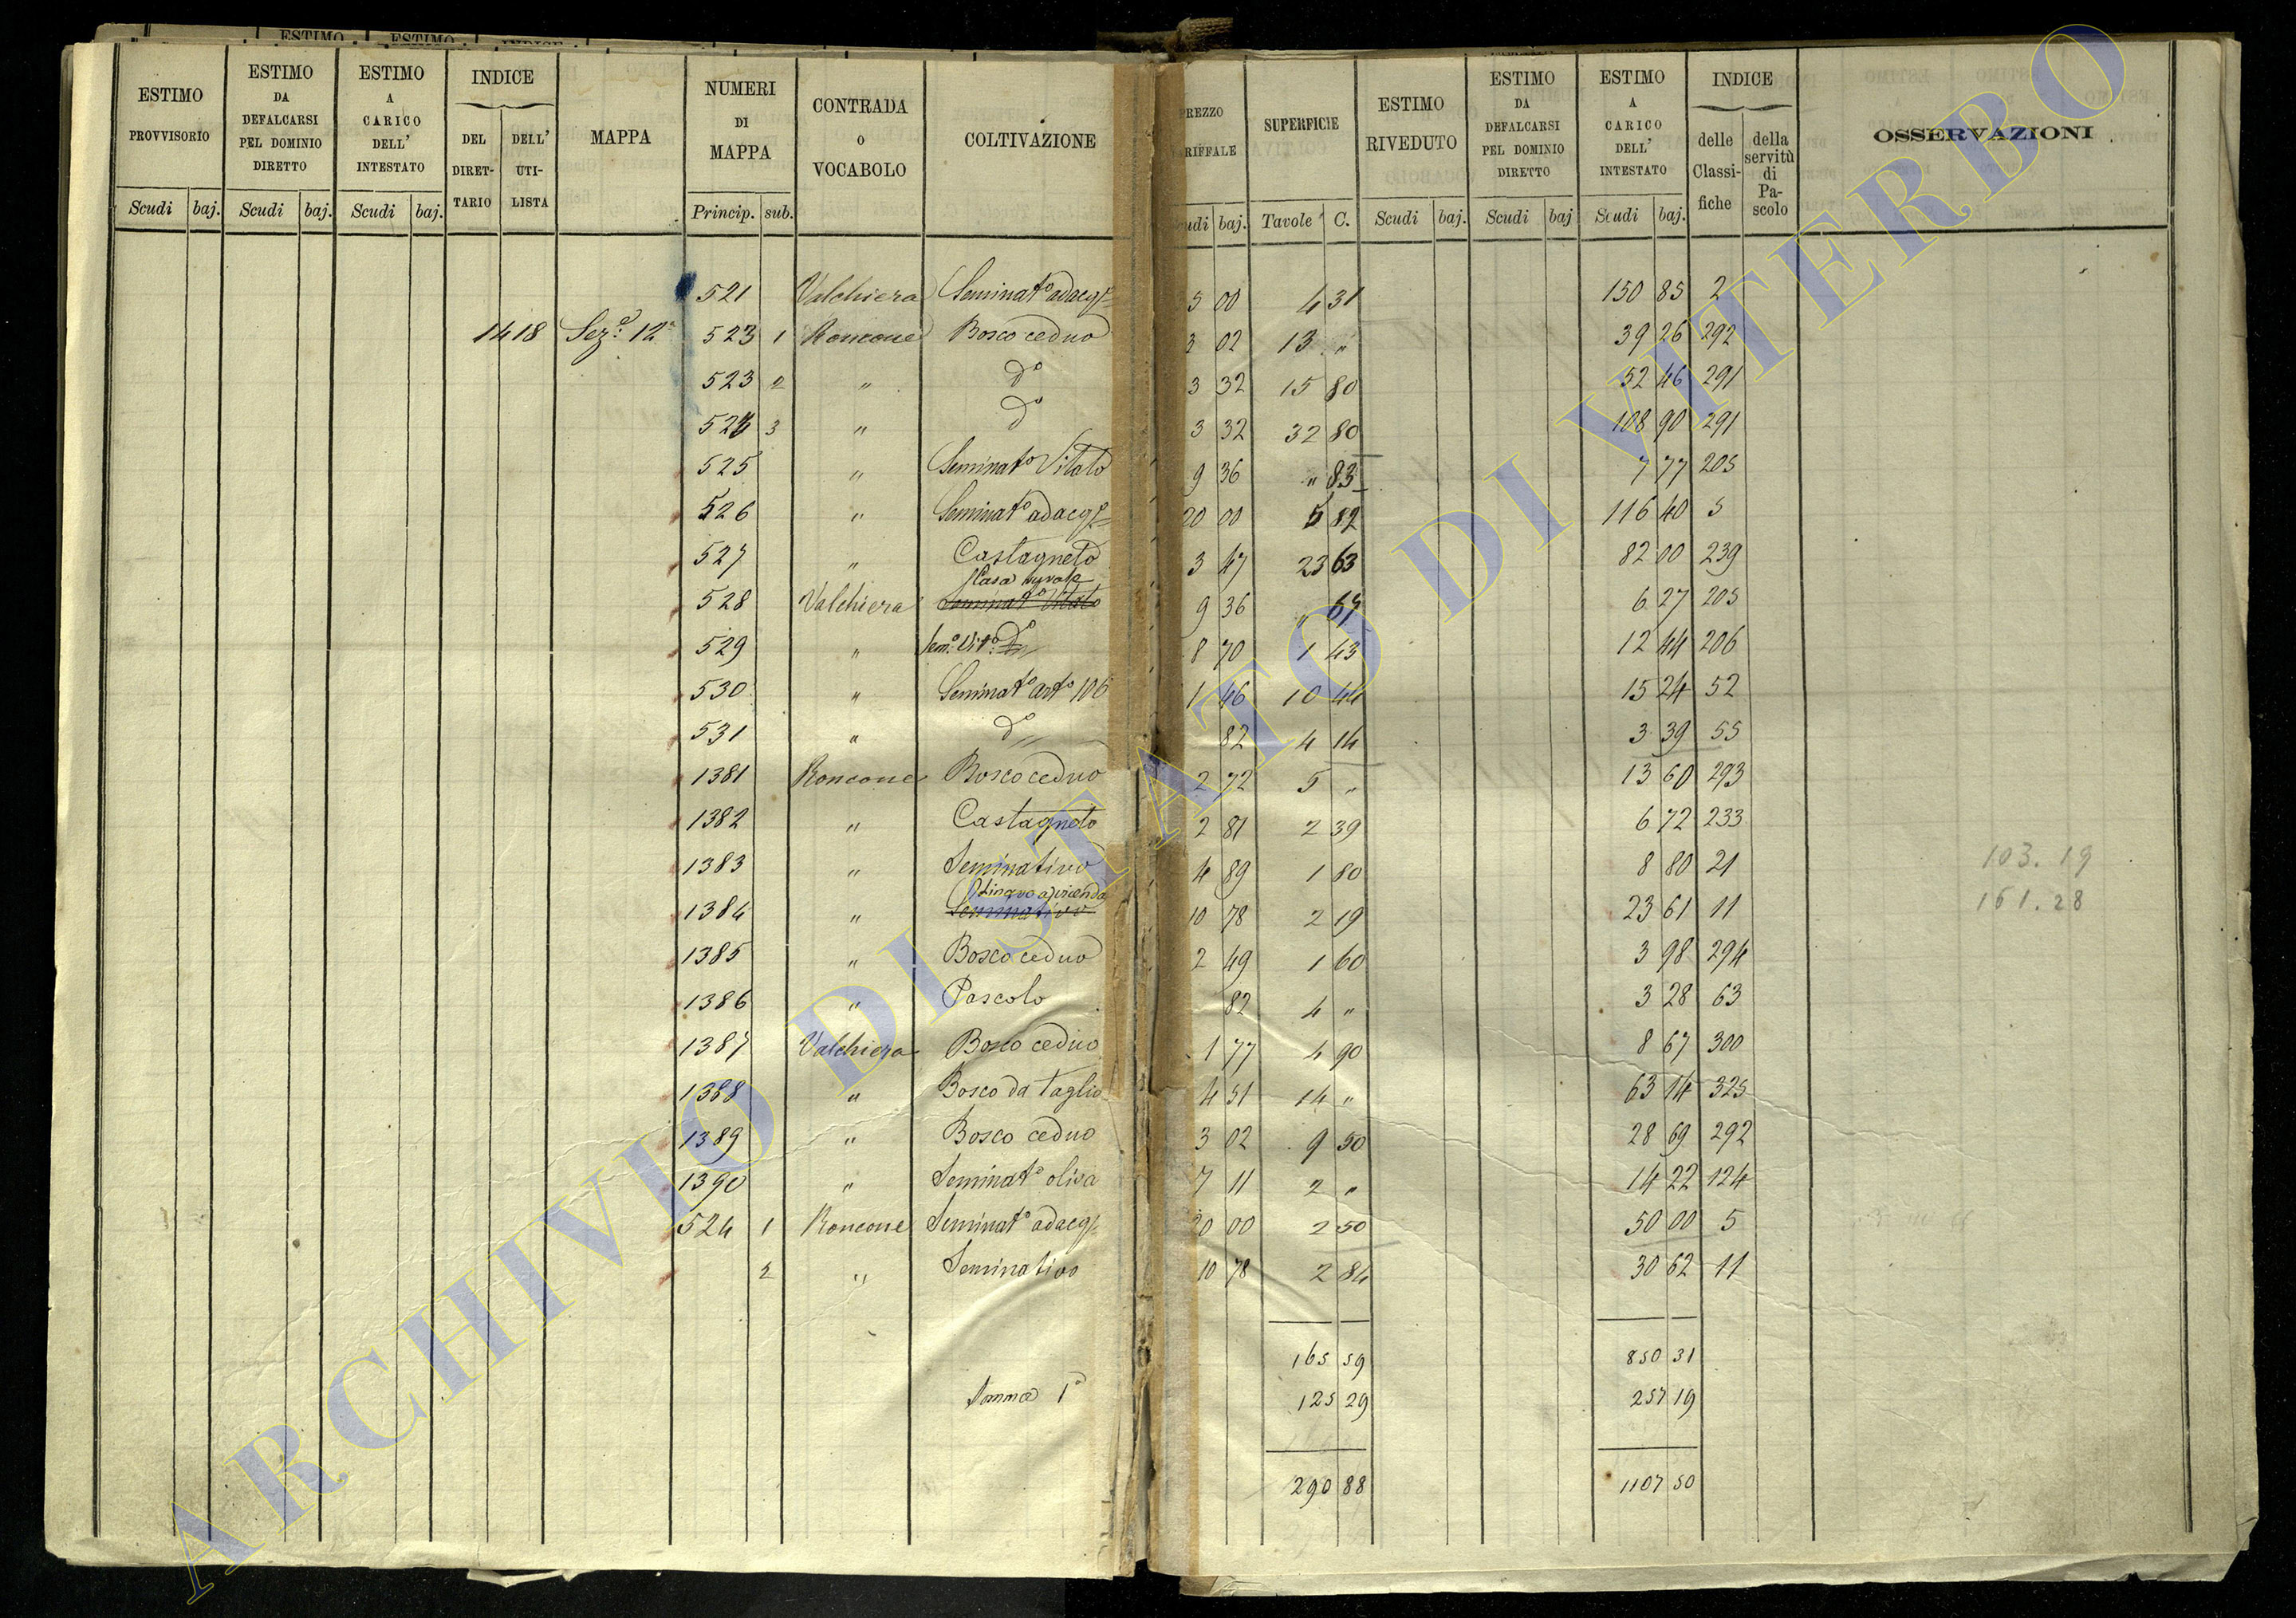 ESTIMO PROVVISORIO | ESTIMO DA DEFALCARSI PEL DOMINIO DIRETTO | ESTIMO A CARICO DELL' INTESTATO | INDICE DEL DIRETTARIO | DELL' UTILISTA | MAPPA | NUMERI DI MAPPA | CONTRADA O VOCABOLO | COLTIVAZIONE | REZZO RIFFALE | SUPERFICIE | ESTIMO RIVEDUTO | ESTIMO DA DEFALCARSI PEL DOMINIO DIRETTO | ESTIMO A CARICO DELL' INTESTATO | INDICE delle Classifiche | della servitù di Pascolo | OSSERVAZIONI
Scudi baj. Scudi baj. Scudi baj. Princip. sub. udi baj. Tavole C. Scudi baj. Scudi baj Scudi baj.
521 Valchiera Seminat.o adacq. 5 00 4 31 150 85 2
1418 Sez.e 12a 523 1 Roncone Bosco ceduo 3 02 13 " 39 26 292
523 2 " d.o 3 32 15 80 52 46 291
523 3 " d.o 3 32 32 80 108 90 291
525 " Seminat.o Vitato 9 36 " 83 7 77 205
526 " Seminat.o adacq. 20 00 5 82 116 40 5
527 " Castagneto 3 47 23 63 82 00 239
Casa
528 Valchiera Seminat.o Vitato 9 36 " 67 6 27 205
529 " Sem.o Vit.o d.o 8 70 1 43 12 44 206
530 " Seminat.o art.o 106 1 46 10 44 15 24 52
531 " d.o 82 4 14 3 39 55
1381 Roncone Bosco ceduo 2 72 5 " 13 60 293
1382 " Castagneto 2 81 2 39 6 72 233
1383 " Seminativo 4 89 1 80 8 80 21 103.19
a vicenda
1384 " Seminativo 10 78 2 19 23 61 11 161.28
1385 " Bosco ceduo 2 49 1 60 3 98 294
1386 " Pascolo 82 4 " 3 28 63
1387 Valchiera Bosco ceduo 1 77 4 90 8 67 300
1388 " Bosco da taglio 4 51 14 " 63 14 325
1389 " Bosco ceduo 3 02 9 50 28 69 292
1390 " Seminat.o oliva 7 11 2 " 14 22 124
524 1 Roncone Seminat.o adacq. 20 00 2 50 50 00 5
2 " Seminativo 10 78 2 84 30 62 11
165 59 850 31
Somma 1a 125 29 257 19
290 88 1107 50
ARCHIVIO DI STATO DI VITERBO